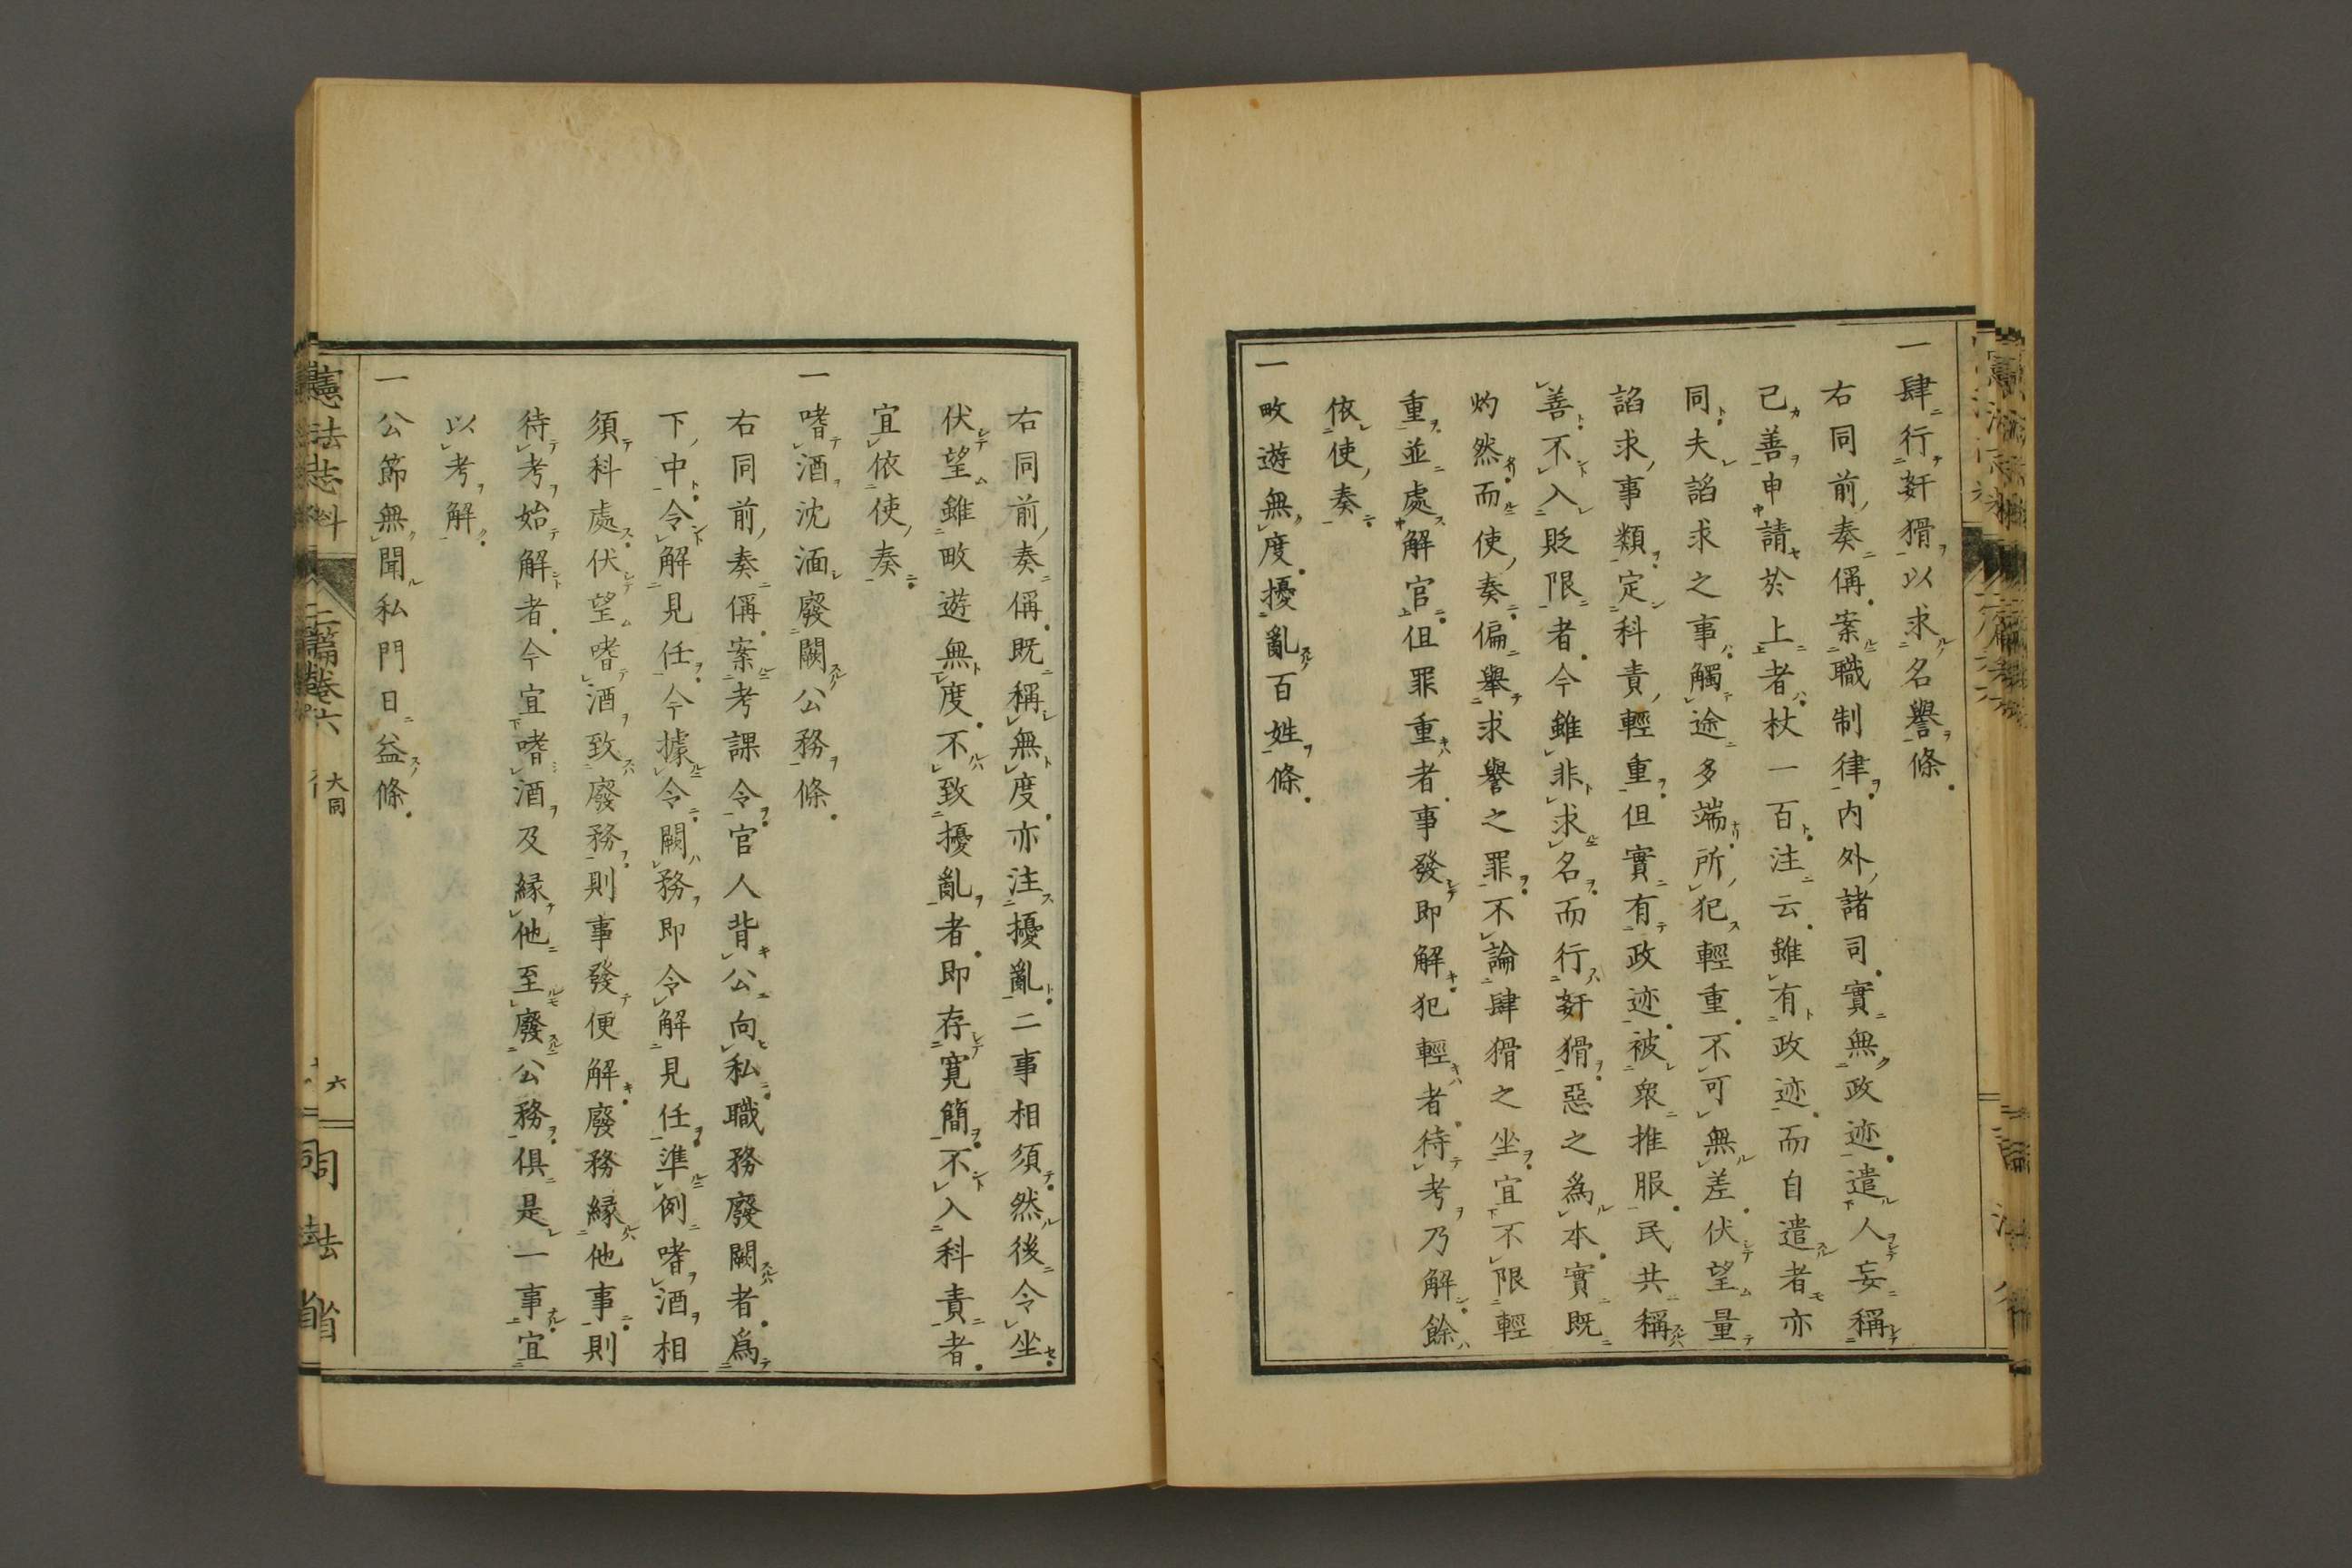 一肆行姧猾以求名譽條。
右同前奏偁。案職制律。内外諸司。實無政迹。遣人妄稱
己善申請於上者。杖一百。注云。雖有政迹。而自遣者亦
同。夫諂求之事。觸途多端。所犯輕重。不可無差。伏望量
諂求事類。定科責輕重。但實有政迹。被衆推服。民共稱
善。不入貶限者。今雖非求名。而行姧猾。惡之為本。實既
灼然。而使奏。偏舉求譽之罪。不論肆猾之坐。宜不限輕
重。並處解官。但罪重者。事發即解。犯輕者。待考乃解。餘
依使奏。
一畋遊無度。擾亂百姓條。
右同前奏偁。既稱無度。亦注擾亂。二事相須。然後令坐。
伏望雖畋遊無度。不致擾亂者。即存寛簡。不入科責者。
宜依使奏。
一嗜酒沈湎廢闕公務條。
右同前奏偁。案考課令。官人背公向私。職務廢闕者。爲
下中。令解見任。今據令。闕務即令解見任。準例嗜酒相
須科處。伏望嗜酒致廢務。則事發便解。廢務縁他事。則
待考始解者。今宜嗜酒及縁他至廢公務。倶是一事。宜
以考解。
一公節無聞私門日益條。
憲法志料 二篇卷六 大同 六 司法省